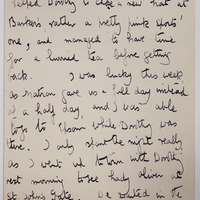 helped Dorothy to choose a new hat at
Barkers rather a pretty pink sports'
one, and managed to have time
for a hurried tea before getting
back. I was lucky this week
as Matron gave us a full day instead
of a half day, and I was able
to go to Epsom while Dorothy was
there. I only the night really,
as I went up to town with Dorothy
next morning to see Lady Oliver at
St Johns Gate. We waited in the